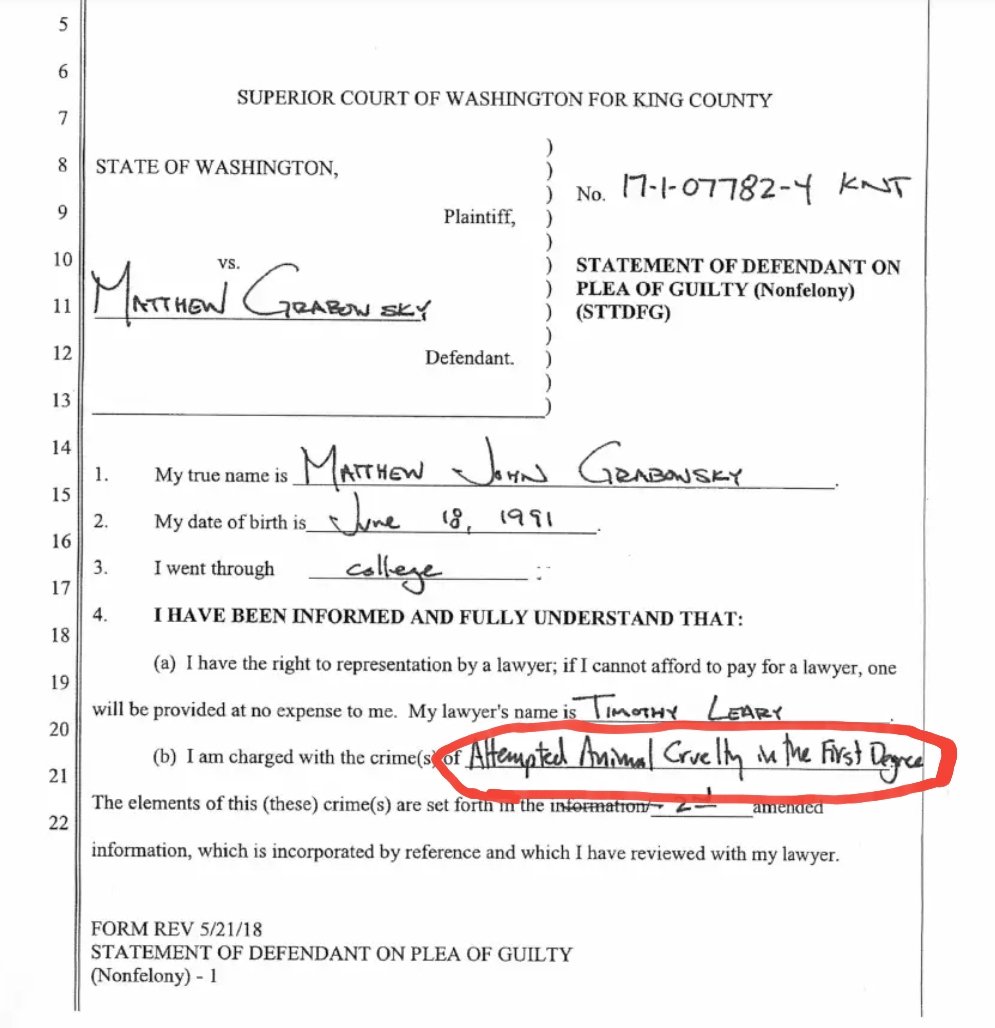 5
6
SUPERIOR COURT OF WASHINGTON FOR KING COUNTY
7
8 STATE OF WASHINGTON, )
) No. 17-1-07782-4 KNT
9 Plaintiff, )
)
10 vs. ) STATEMENT OF DEFENDANT ON
11 MATTHEW GRABOWSKY ) PLEA OF GUILTY (Nonfelony)
) (STTDFG)
)
12 Defendant. )
)
13 )
14
1. My true name is MATTHEW JOHN GRABOWSKY.
15
2. My date of birth is June 18, 1991.
16
3. I went through college
17
4. I HAVE BEEN INFORMED AND FULLY UNDERSTAND THAT:
18
(a) I have the right to representation by a lawyer; if I cannot afford to pay for a lawyer, one
19
will be provided at no expense to me. My lawyer's name is TIMOTHY LEARY.
20
(b) I am charged with the crime(s) of Attempted Animal Cruelty in the First Degree
21
The elements of this (these) crime(s) are set forth in the information/ 2nd amended
22
information, which is incorporated by reference and which I have reviewed with my lawyer.
FORM REV 5/21/18
STATEMENT OF DEFENDANT ON PLEA OF GUILTY
(Nonfelony) - 1